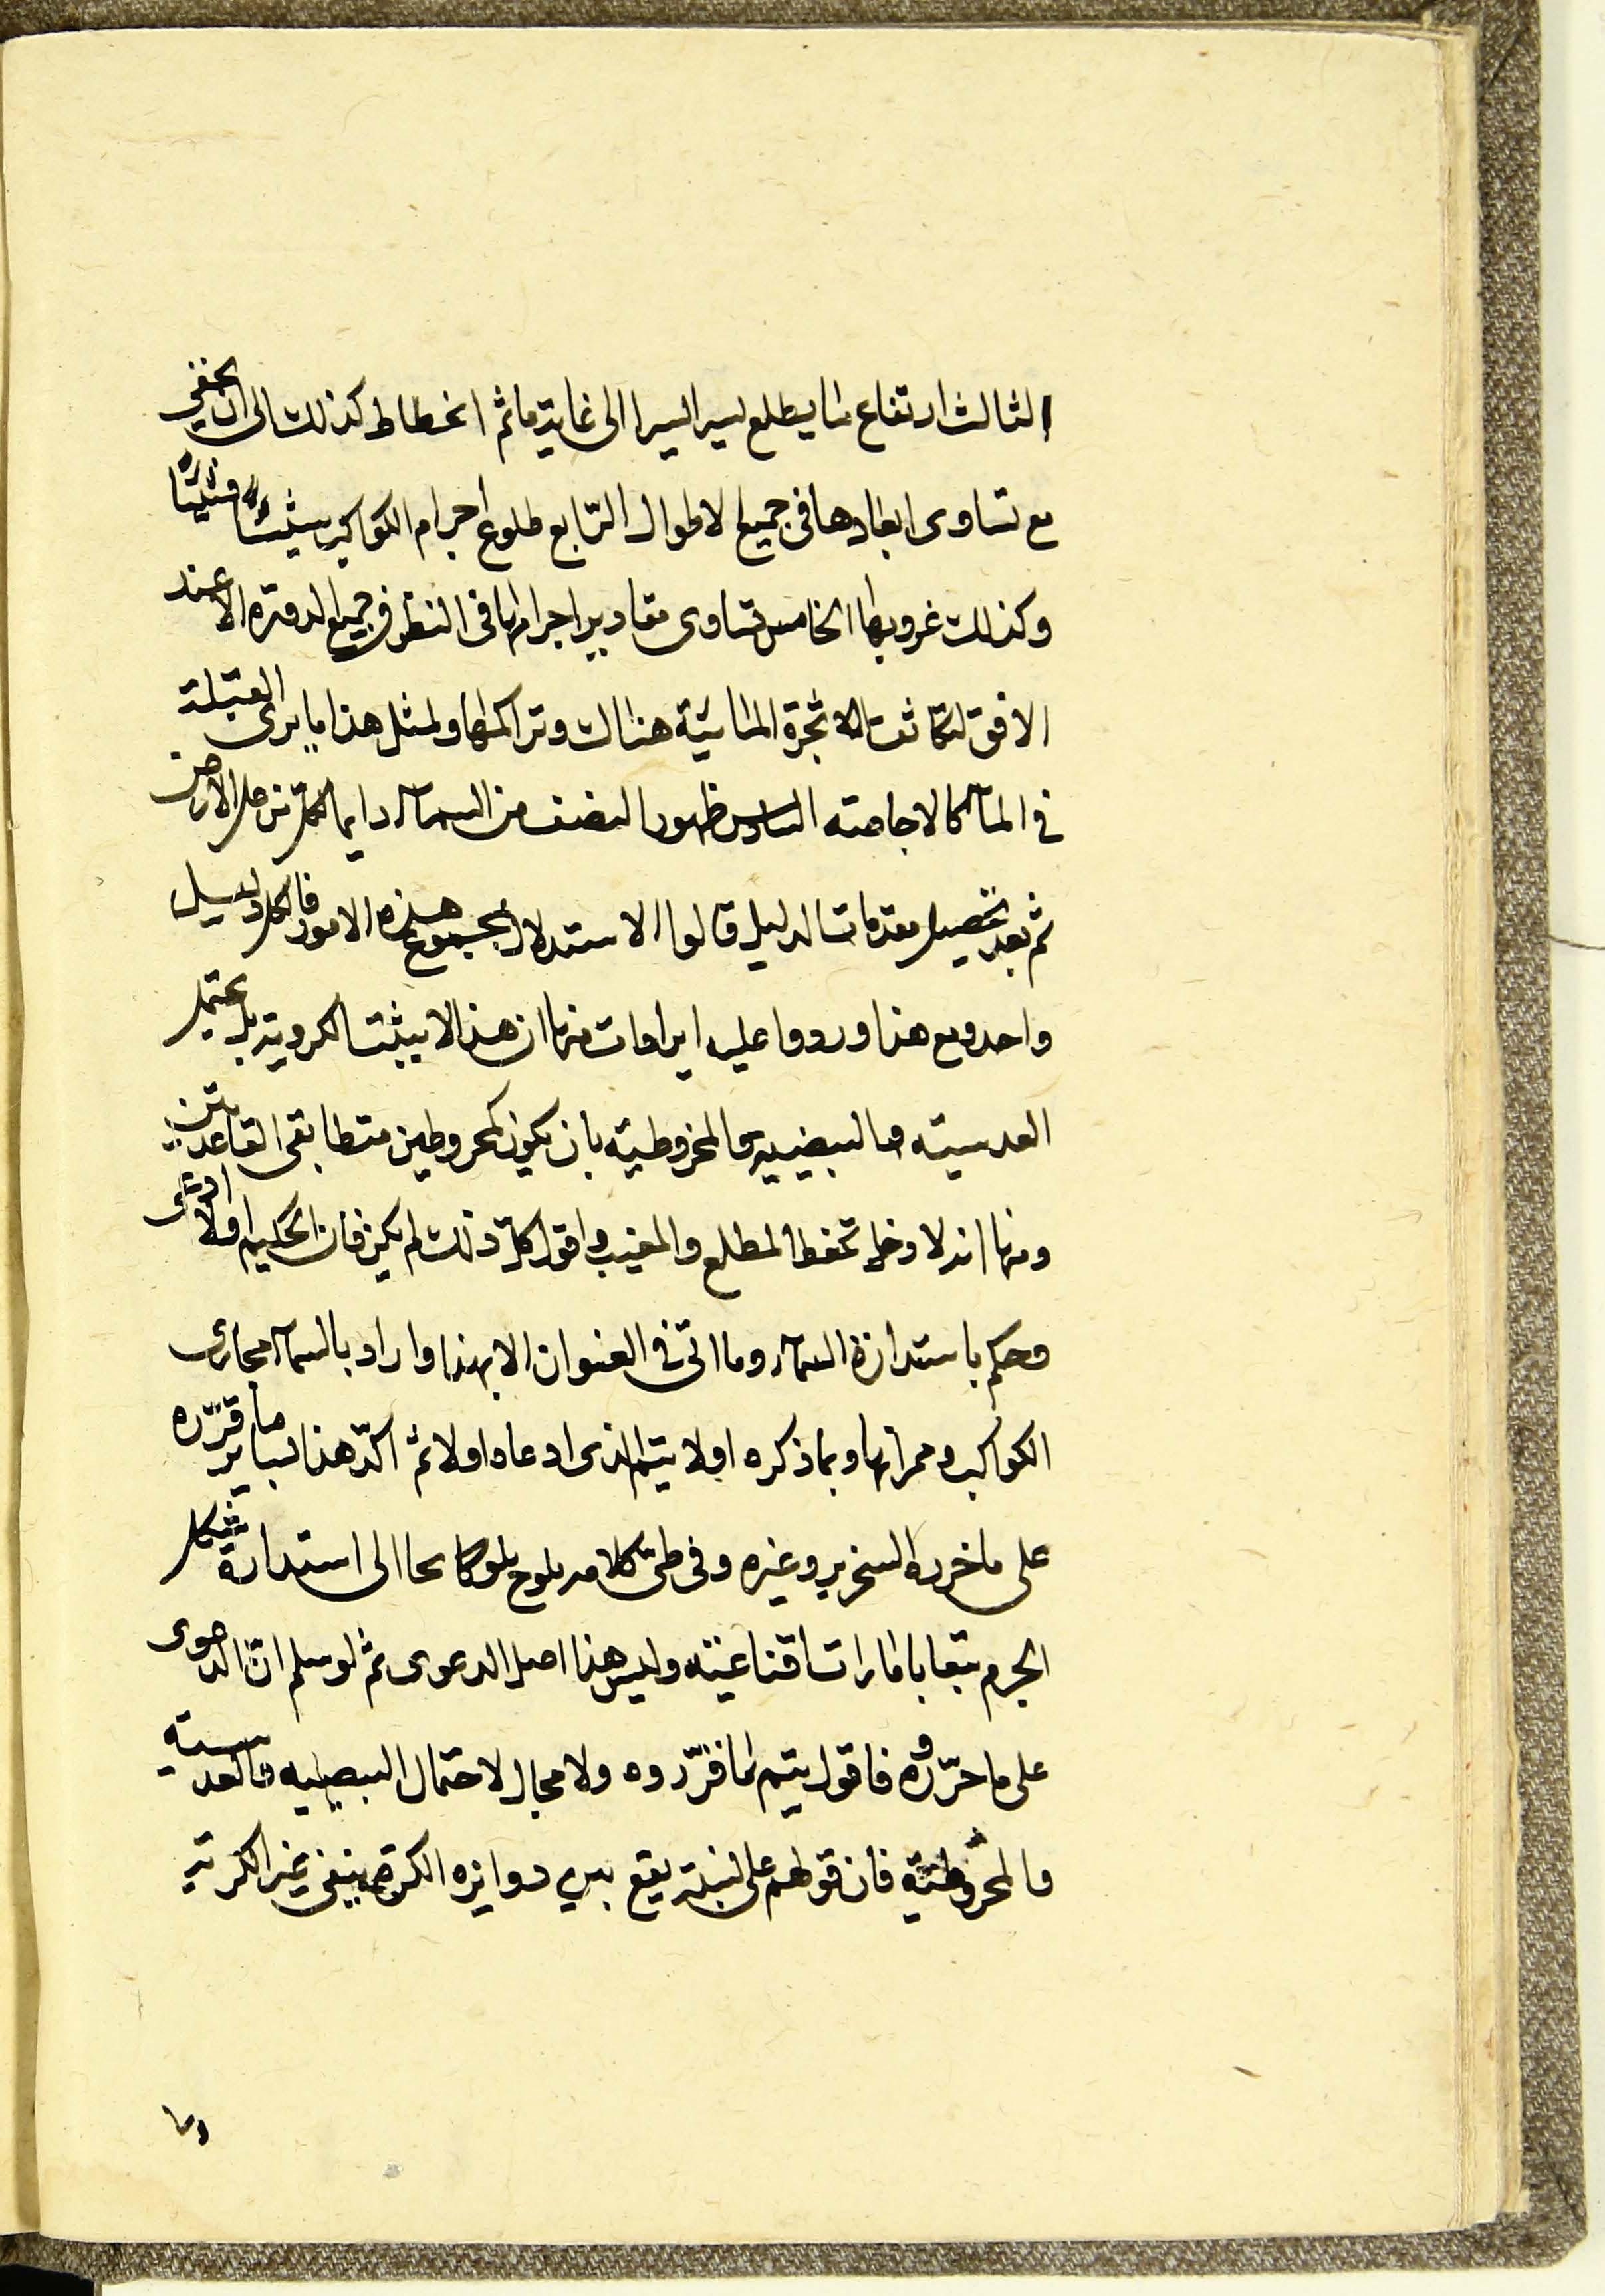 الثالث ارتفاع ما يطلع يسيرا يسيرا الى غاية ما ثم انحطاط كذلك الى ان يخفى
مع تساوى ابعادها فى جميع الاطوال الرّابع طلوع اجرام الكواكب شيئًا فشيئًا
وكذلك غروبها الخامس تساوى مقادير اجرامها فى النظر فى جميع الدورة الا عند
الافق لتكاثف الابخرة المائيّة هناك وتراكمها ولمثل هذا ما يرى العنبة
فى الماء كالاجاصة السادس ظهور النصف من السماء دايما لمن على الارض
ثم بعد تحصيل مقدمات الدليل قالوا الاستدلال بمجموع هذه الامور فالكل دليل
واحد ومع هذا وردوا عليه ايرادات منها ان هذا لا يثبت الكروية بل يحتمل
العدسية والبيضية والمخروطية بان يكون كمخروطين متطابقى القاعدتين
ومنها انه لا دخل لحفظ المطلع والمغيب واقول كلّ ذلك لم يكن فان الحكيم اولا ادعى
وحكم باستدارة السماء وما اتى فى العنوان الا بهذا واراد بالسماء مجارى
الكواكب وممراتها وبما ذكره اولا يتم الذى ادعاه اولا ثم اكدّ هذا بساير ما قرّره
على ما حرره النحرير وغيره وفى طى كلامه يلوح تلويحا الى استدارة شكل
الجرم تبعا بامارات اقناعية وليس هذا اصل الدعوى ثم لو سلم ان الدعوى
على ما حرّروه فاقول يتم ما قرّروه ولا مجال لاحتمال البيضية والعدسية
والمخروطية فان قولهم على نسبة يقع بين دوايره الكرة ينفى غير الكرية
وما